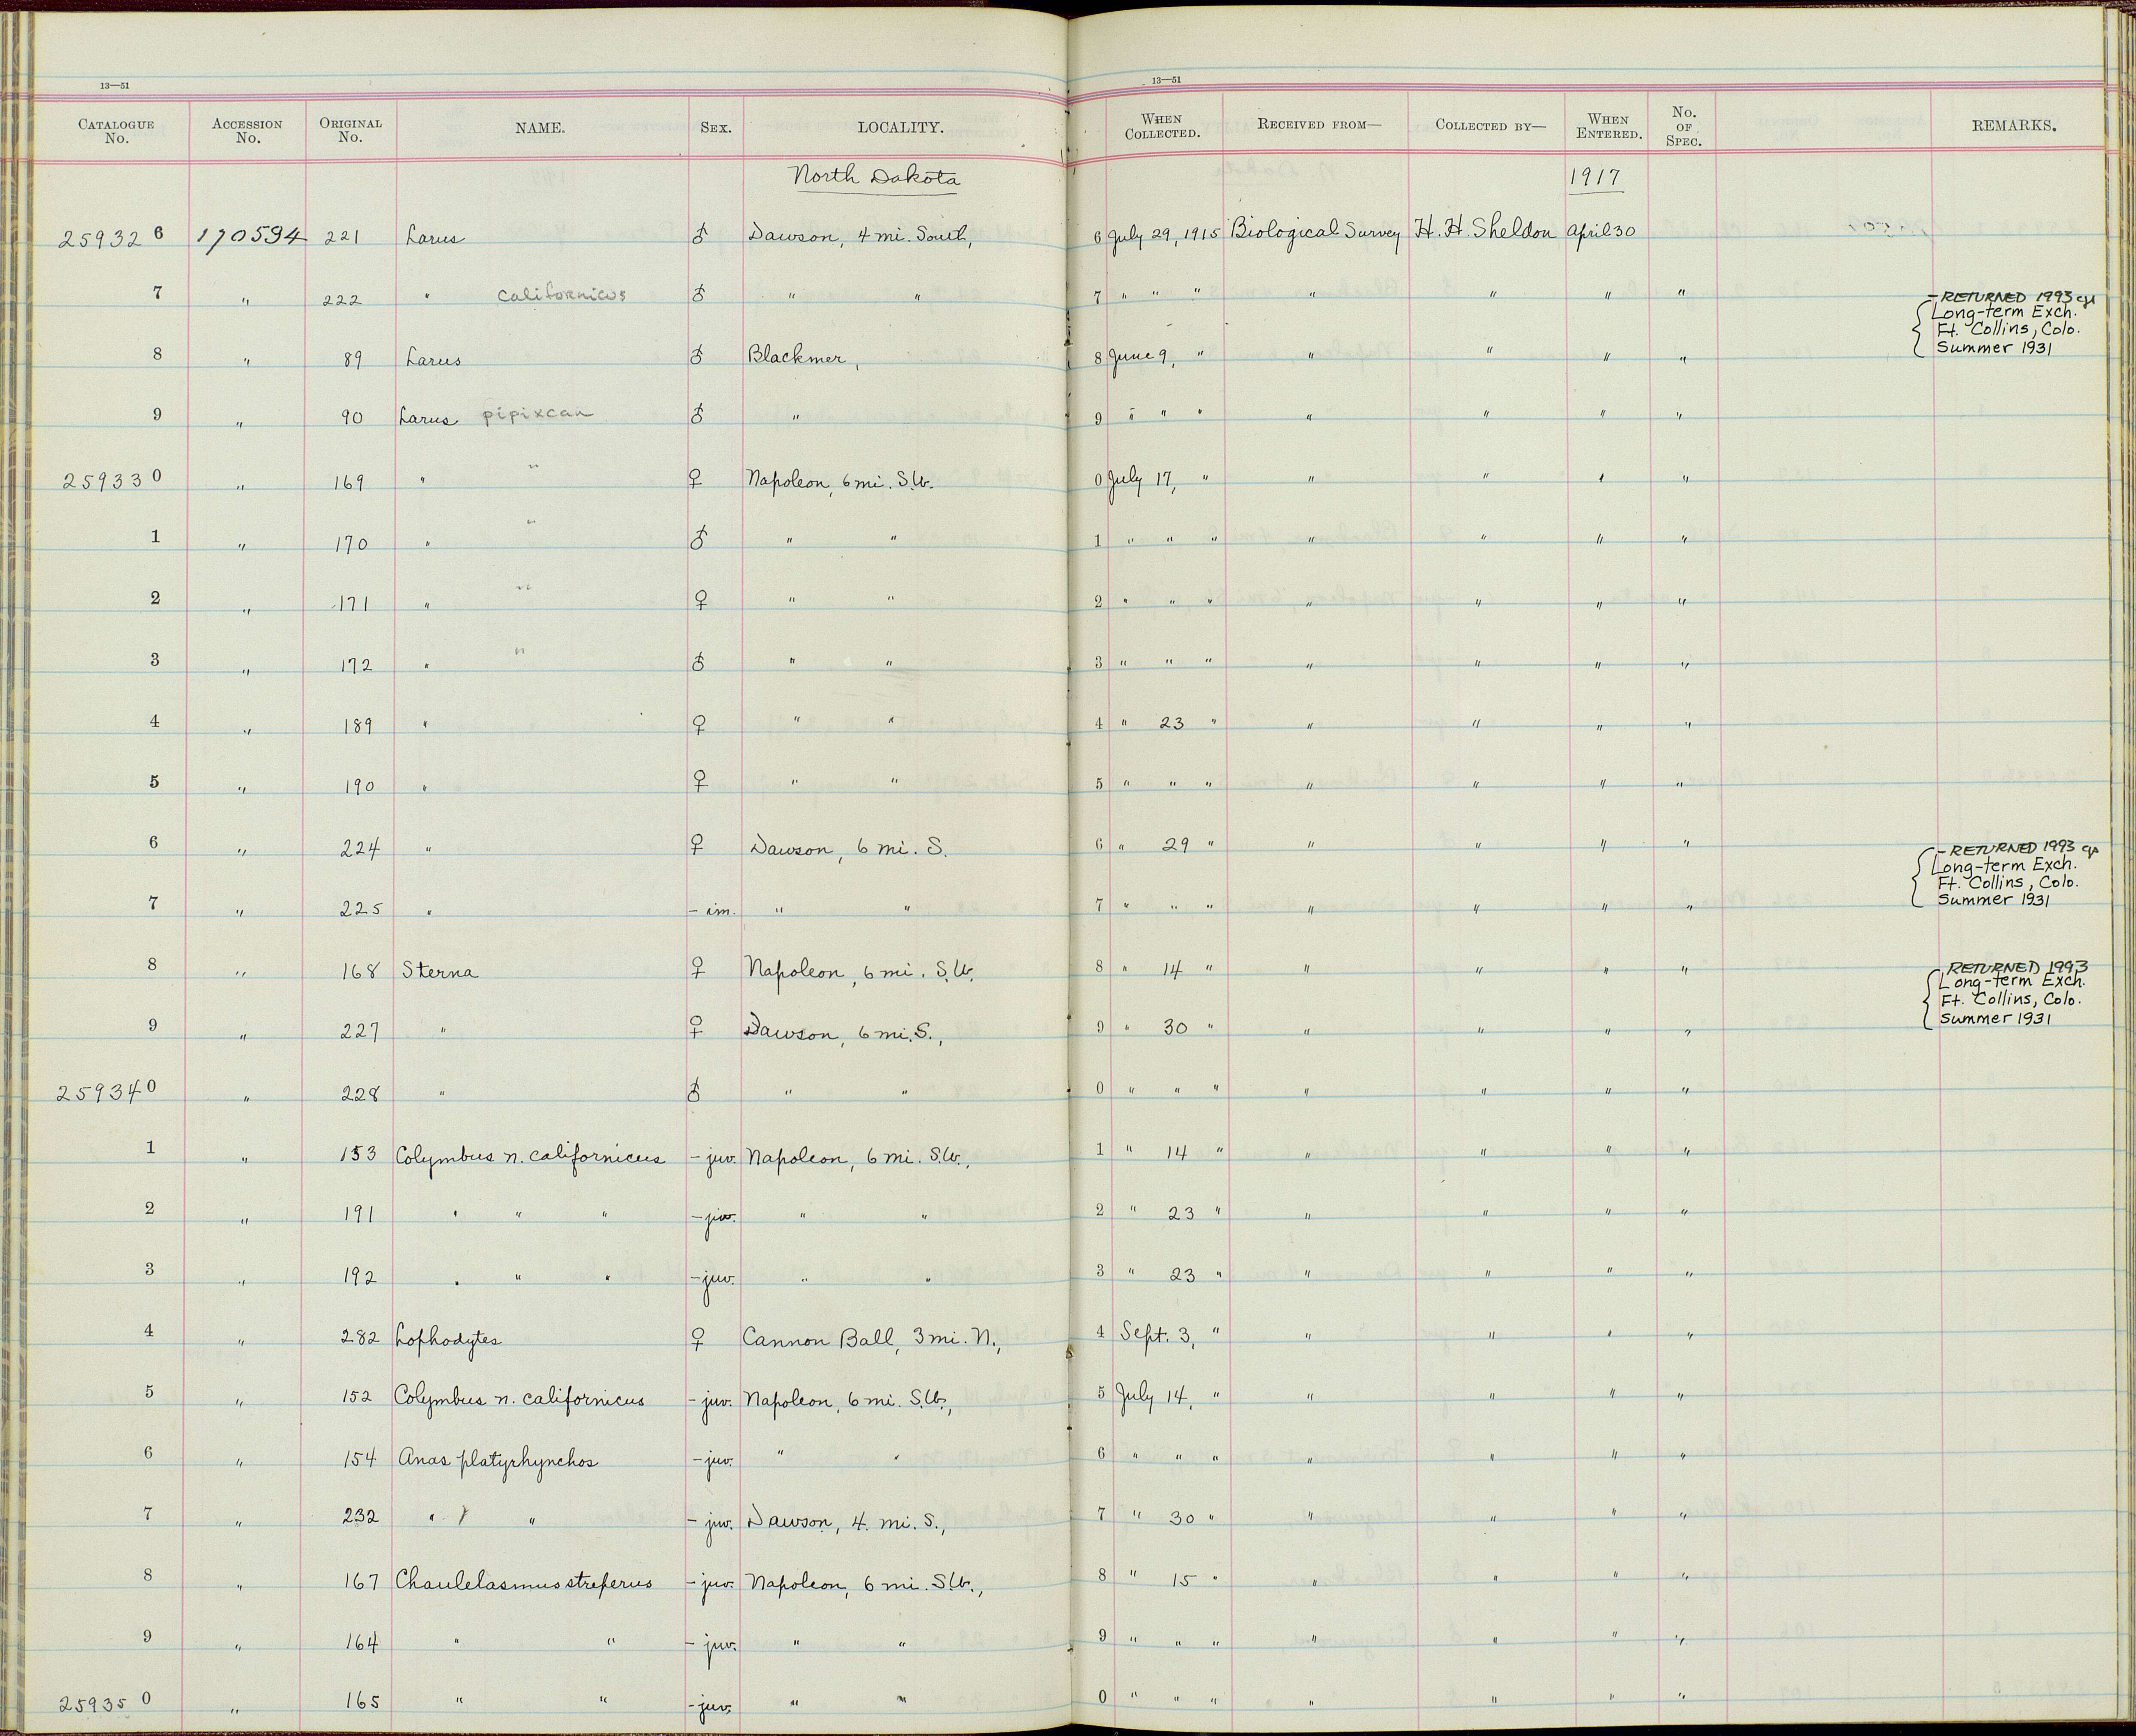 13—51 13—51
CATALOGUE No. ACCESSION No. ORIGINAL No. NAME. SEX. LOCALITY. WHEN COLLECTED. RECEIVED FROM— COLLECTED BY— WHEN ENTERED. No. OF SPEC. REMARKS.
North Dakota 1917
259326 170594 221 Larus ♂ Dawson, 4 mi. South, 6 July 29, 1915 Biological Survey H. H. Sheldon April 30
7 " 222 " californicus ♂ " " 7 " " " " " " " - RETURNED 1993
Long-term Exch.
Ft. Collins, Colo.
8 " 89 Larus ♂ Blackmer, 8 June 9, " " " " " Summer 1931
9 " 90 Larus pipixcan ♂ " 9 " " " " " " "
259330 " 169 " " ♀ Napoleon, 6 mi. S.W. 0 July 17, " " " " "
1 " 170 " " ♂ " " 1 " " " " " " "
2 " 171 " " ♀ " " 2 " " " " " " "
3 " 172 " " ♂ " " 3 " " " " " " "
4 " 189 " ♀ " " 4 " 23 " " " " "
5 " 190 " ♀ " " 5 " " " " " " "
6 " 224 " ♀ Dawson, 6 mi. S. 6 " 29 " " " " " - RETURNED 1993
Long-term Exch.
Ft. Collins, Colo.
7 " 225 " - im. " " 7 " " " " " " " Summer 1931
8 " 168 Sterna ♀ Napoleon, 6 mi. S.W. 8 " 14 " " " " " RETURNED 1993
Long-term Exch.
Ft. Collins, Colo.
9 " 227 " ♀ Dawson, 6 mi. S., 9 " 30 " " " " " Summer 1931
259340 " 228 " ♂ " " 0 " " " " " " "
1 " 153 Colymbus n. californicus - juv. Napoleon, 6 mi. S.W., 1 " 14 " " " " "
2 " 191 " " " - juv. " " 2 " 23 " " " " "
3 " 192 " " " - juv. " " 3 " 23 " " " " "
4 " 282 Lophodytes ♀ Cannon Ball, 3 mi. N., 4 Sept. 3, " " " " "
5 " 152 Colymbus n. californicus - juv. Napoleon, 6 mi. S.W., 5 July 14, " " " " "
6 " 154 Anas platyrhynchos - juv. " " 6 " " " " " " "
7 " 232 " " - juv. Dawson, 4. mi. S., 7 " 30 " " " " "
8 " 167 Chaulelasmus streperus - juv. Napoleon, 6 mi. S.W., 8 " 15 " " " " "
9 " 164 " " - juv. " " 9 " " " " " " "
259350 " 165 " " - juv. " " 0 " " " " " " "